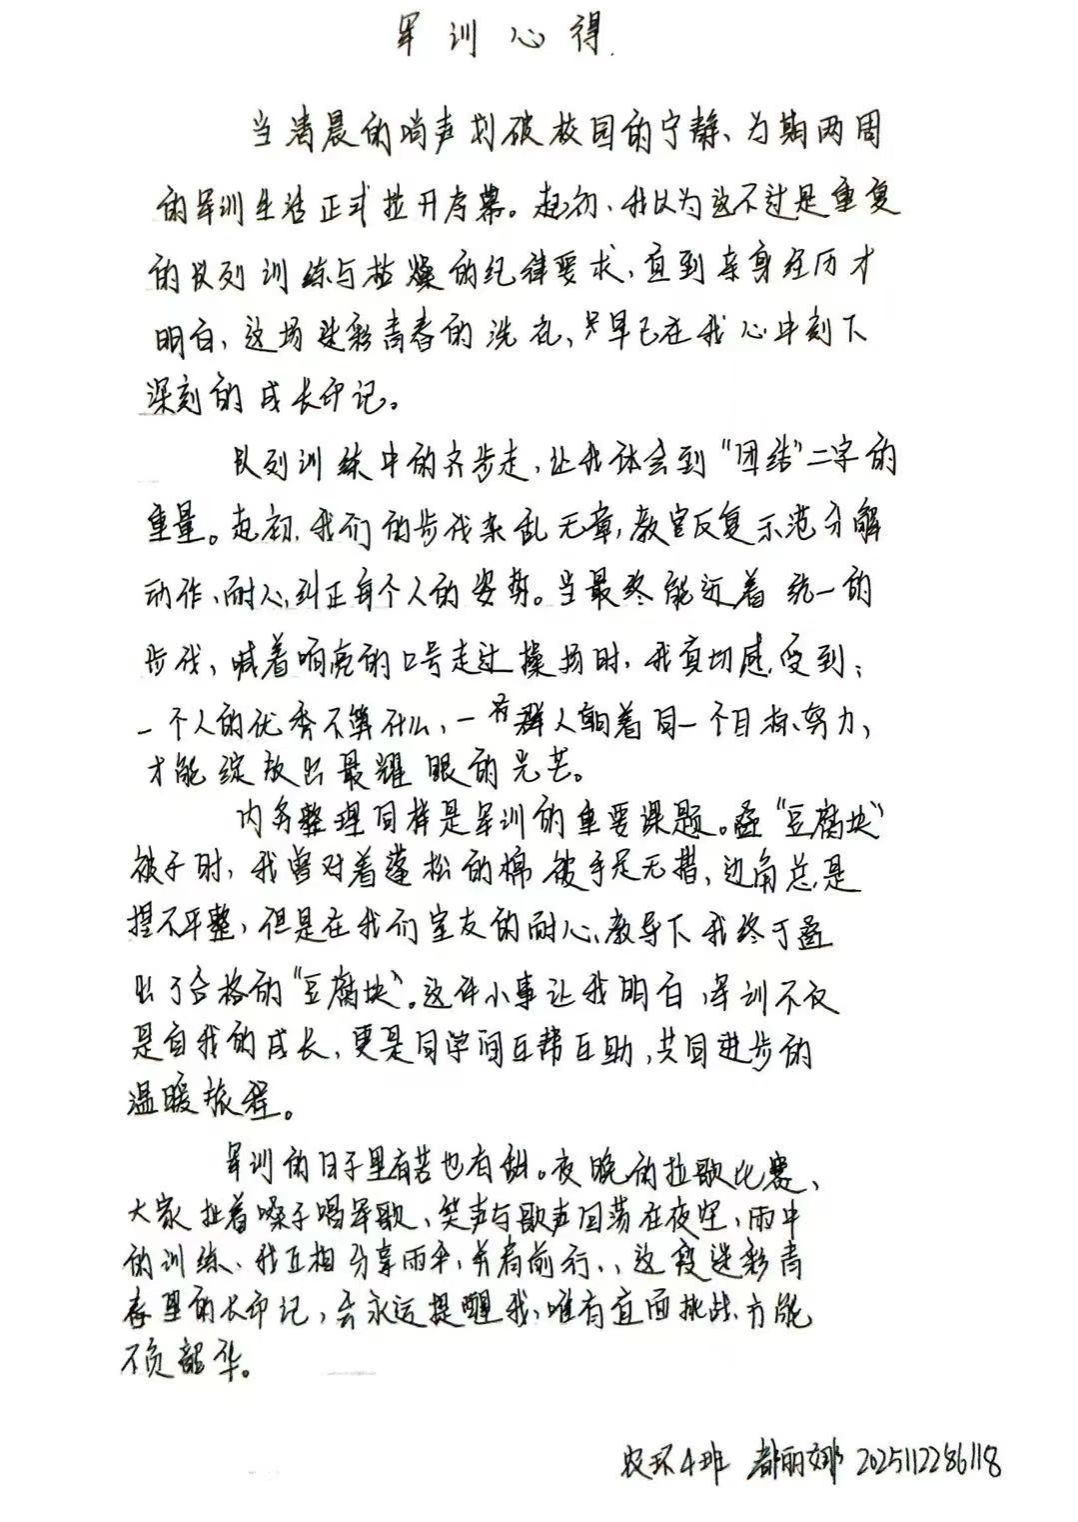 军训心得
当清晨的哨声划破校园的宁静、为期两周
的军训生活正式拉开序幕。起初、我以为这不过是重复
的队列训练与枯燥的纪律要求,直到亲身经历才
明白,这场迷彩青春的洗礼,早已在我心中刻下
深刻的成长印记。
队列训练中的齐步走,让我体会到“团结”二字的
重量。起初,我们的步伐杂乱无章,教官反复示范分解
动作、耐心纠正每个人的姿势。当最终能迈着统一的
步伐,喊着响亮的口号走过操场时,我真切感受到:
一个人的优秀不算什么,一群人朝着同一个目标努力,
才能绽放出最耀眼的光芒。
内务整理同样是军训的重要课题。叠“豆腐块”
被子时,我曾对着蓬松的棉被手足无措,边角总是
捏不平整,但是在我们室友的耐心教导下我终于叠
出了合格的“豆腐块”。这件小事让我明白,军训不仅
是自我的成长,更是同学间互帮互助,共同进步的
温暖旅程。
军训的日子里有苦也有甜。夜晚的拉歌比赛、
大家扯着嗓子唱军歌、笑声与歌声回荡在夜空,雨中
的训练、我互相分享雨伞,并肩前行,,这段迷彩青
春里的长印记,会永远提醒我,唯有直面挑战,方能
不负韶华。
农环4班 都丽娜 2025112286118